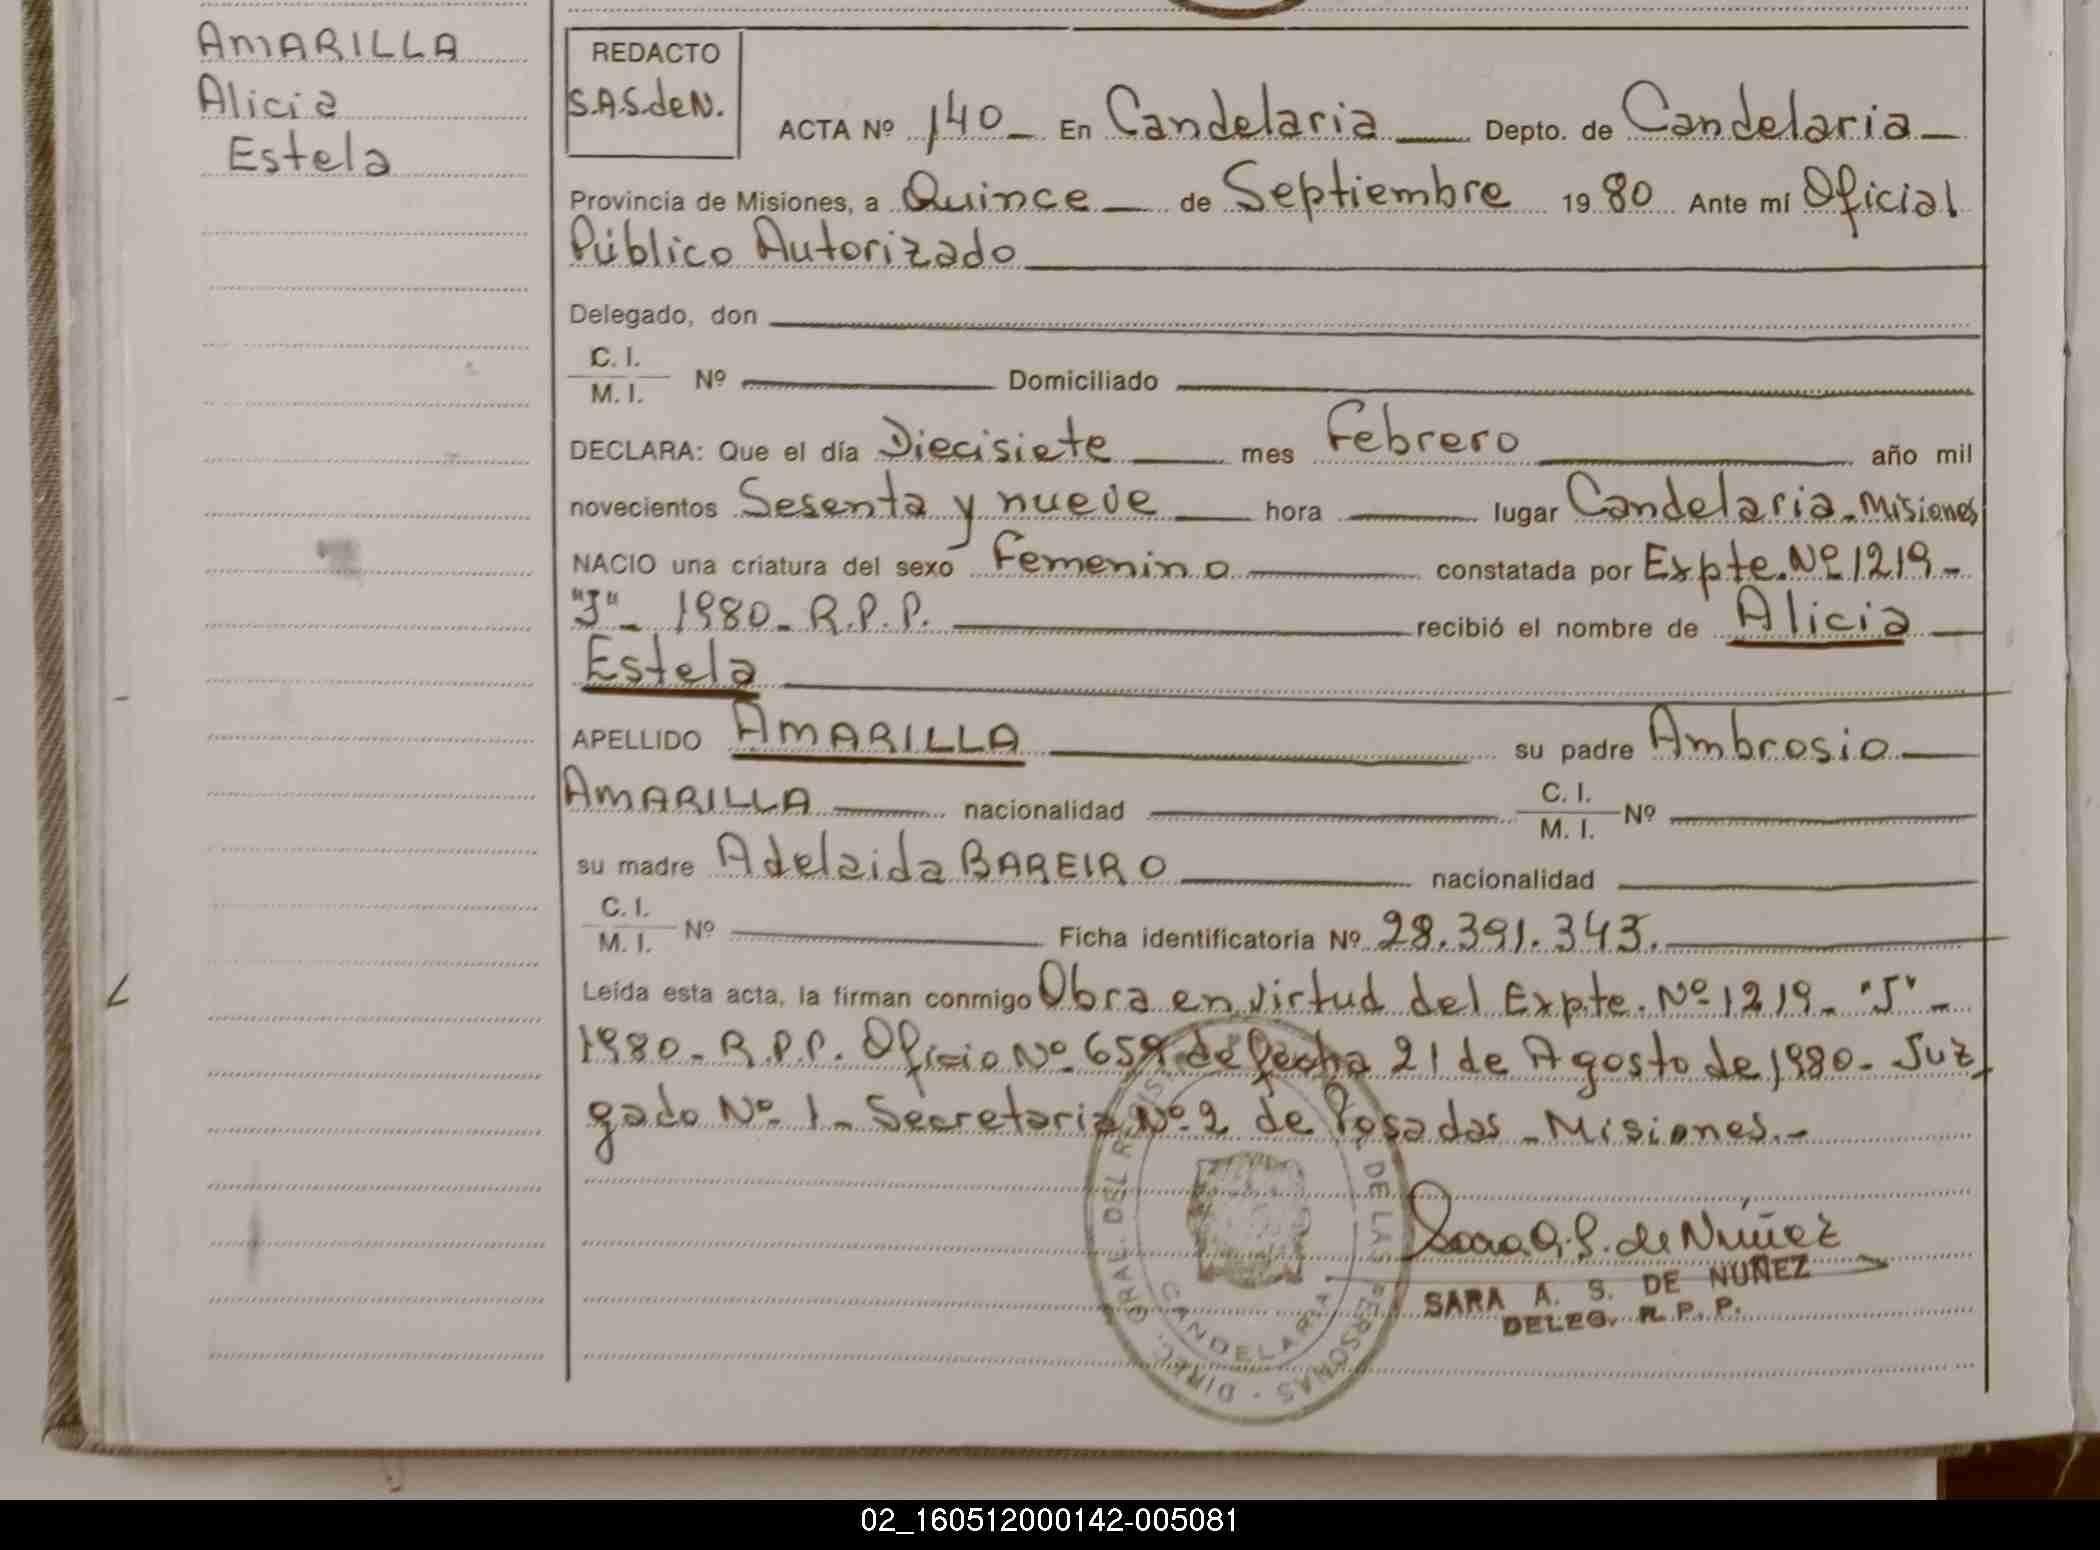 AMARILLA
Alicia
Estela
REDACTO
S.A.S.deN.
ACTA Nº 140_ En Candelaria Depto. de Candelaria
Provincia de Misiones, a Quince de Septiembre 1980 Ante mí Oficial
Público Autorizado
Delegado, don
C. I.
M. I. Nº Domiciliado
DECLARA: Que el día Diecisiete mes Febrero año mil
novecientos Sesenta y nueve hora lugar Candelaria-Misiones
NACIO una criatura del sexo Femenino constatada por Expte.Nº 1219-
"J"- 1980-R.P.P. recibió el nombre de Alicia
Estela
APELLIDO AMARILLA su padre Ambrosio
AMARILLA nacionalidad C. I. M. I. Nº
su madre Adelaida BAREIRO nacionalidad
C. I. M. I. Nº Ficha identificatoria Nº 28.391.343.
Leída esta acta, la firman conmigo Obra en virtud del Expte. Nº 1219- "J"-
1980-R.P.P. Oficio Nº 659 de fecha 21 de Agosto de 1980- Juz
gado Nº 1- Secretaria Nº 2 de Posadas - Misiones.-
DIREC. GRAL. DEL REGIS. DE LAS PERSONAS
CANDELARIA
Sara A. S. de Núñez
SARA A. S. DE NUÑEZ
DELEG. R. P. P.
02_160512000142-005081